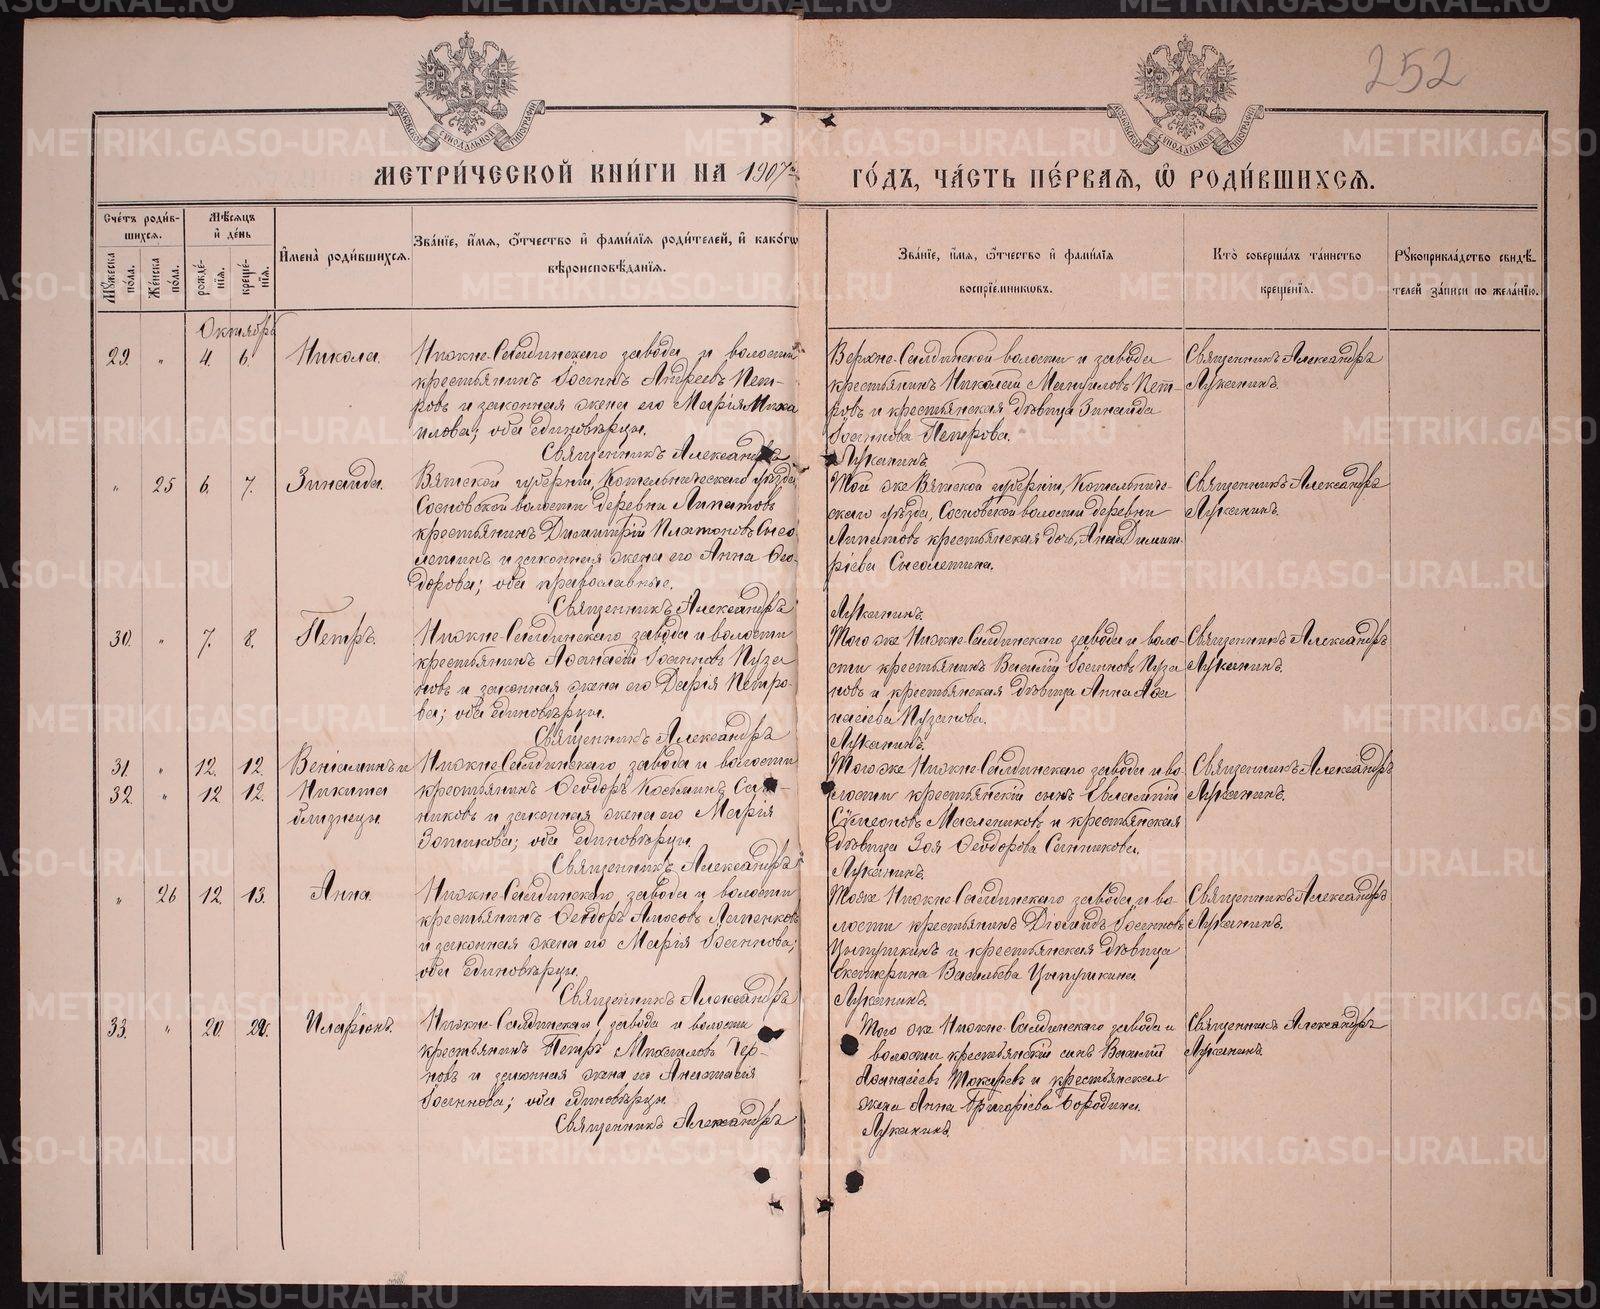 252
МЕТРИ́ЧЕСКОЙ КНИ́ГИ НА 1907 й
ГО́ДЪ, ЧА́СТЬ ПЕ́РВАЯ, Ѡ РОДИ́ВШИХСЯ.
Сче́тъ роди́в-
шихся.
Мѣсяцъ
и де́нь
Мꙋжеска по́ла.
Же́нска по́ла.
рожде́-
нїя.
креще́-
нїя.
Имена̀ роди́вшихся.
Зва́нїе, и́мя, ѻ҆́тчество и фами́лїя роди́телей, и како́гѡ
вѣроисповѣ́данїя.
Зва́нїе, и́мя, ѻ҆́тчество и фами́лїя
воспрїе́мниковъ.
Кто̀ соверша́лъ та́инство
креще́нїя.
Рꙋкоприкла́дство свидѣ́-
телей за́писи по жела́нїю.
Октябрь
29. " 4. 6. Никола.
Нижне-Салдинскаго завода и волости
крестьянинъ Іоаннъ Андреевъ Пет-
ровъ и законная жена его Марія Миха
илова; оба единовѣрцы.
Священникъ Александръ
Верхне-Салдинской волости и завода
крестьянинъ Николай Мануиловъ Пет-
ровъ и крестьянская дѣвица Зинаида
Іоаннова Петрова.
Луканинъ.
Священникъ Александръ
Луканинъ.
" 25 6. 7. Зинаида.
Вятской губерніи, Котельническаго уѣзда,
Сосновской волости деревни Липатовъ
крестьянинъ Димитрій Платоновъ Сысо-
летинъ и законная жена его Анна Ѳео-
дорова; оба православные.
Священникъ Александръ
Той же Вятской губерніи, Котельниче-
скаго уѣзда, Сосновской волости деревни
Липатовъ крестьянская дочь, Анна Димит-
ріева Сысолетина.
Луканинъ.
Священникъ Александръ
Луканинъ.
30. " 7. 8. Петръ.
Нижне-Салдинскаго завода и волости
крестьянинъ Аѳанасій Іоанновъ Пуза
новъ и законная жена его Дарія Петро-
ва; оба единовѣрцы.
Священникъ Александръ
Того же Нижне-Салдинскаго завода и воло-
сти крестьянинъ Василій Іоанновъ Пуза
новъ и крестьянская дѣвица Анна Аѳа
насіева Пузанова.
Луканинъ.
Священникъ Александръ
Луканинъ.
31. " 12. 12. Веніаминъ и
32. " 12 12. Никита
близнецы.
Нижне-Салдинскаго завода и волости
крестьянинъ Ѳеодоръ Косьминъ Сан-
никовъ и законная жена его Марія
Зотикова; оба единовѣрцы.
Священникъ Александръ
Того же Нижне-Салдинскаго завода и во-
лости крестьянскій сынъ Евлампій
Сѵмеоновъ Маслениковъ и крестьянская
дѣвица Зоя Ѳеодорова Санникова.
Луканинъ.
Священникъ Александръ
Луканинъ.
" 26 12. 13. Анна.
Нижне-Салдинскаго завода и волости
крестьянинъ Ѳеодоръ Амосовъ Лапенковъ
и законная жена его Марія Іоаннова;
оба единовѣрцы.
Священникъ Александръ
Тоже Нижне-Салдинскаго завода и во-
лости крестьянинъ Діомидъ Іоанновъ
Цыпушкинъ и крестьянская дѣвица
Екатерина Васильева Цыпушкина.
Луканинъ.
Священникъ Александръ
Луканинъ.
33. " 20. 21. Иларіонъ.
Нижне-Салдинскаго завода и волости
крестьянинъ Петръ Михаиловъ Чер-
новъ и законная жена его Анастасія
Іоаннова; оба единовѣрцы.
Священникъ Александръ
Того же Нижне-Салдинскаго завода и
волости крестьянскій сынъ Василій
Аѳанасіевъ Токаревъ и крестьянская
жена Анна Григоріева Бородина.
Луканинъ.
Священникъ Александръ
Луканинъ.
METRIKI.GASO-URAL.RU